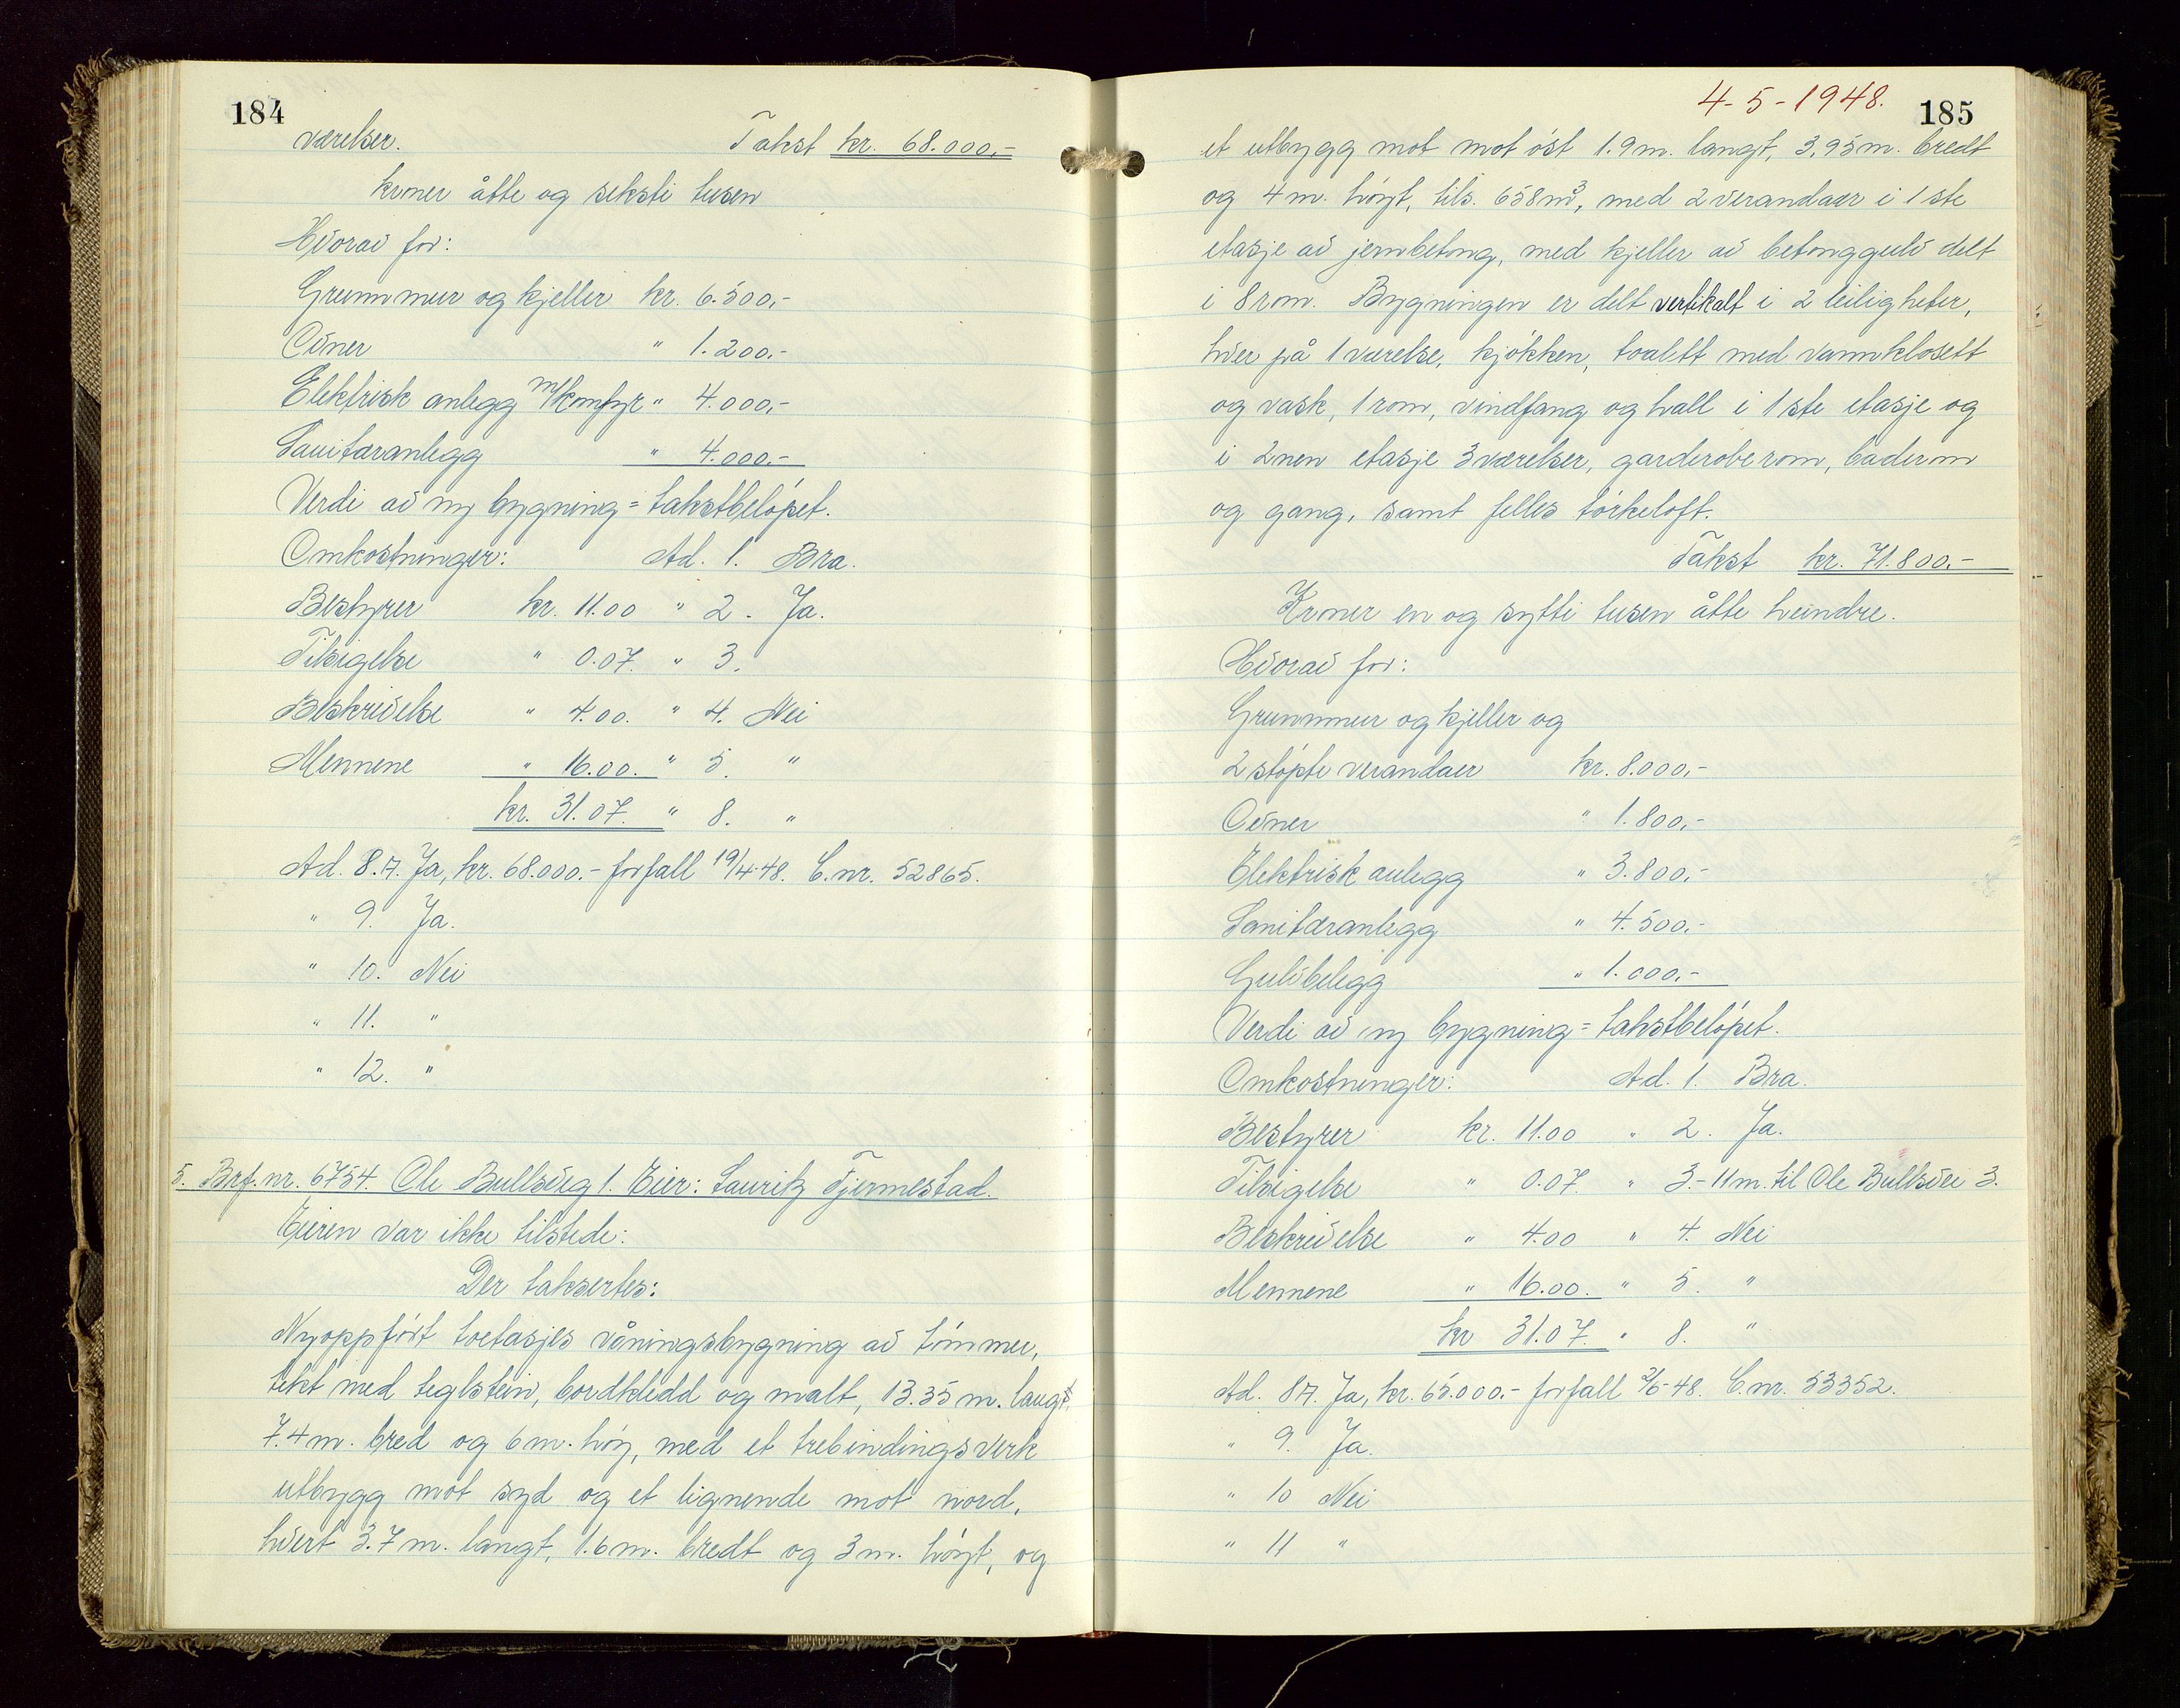 184
værelser. Takst kr. 68.000,-
kroner åtte og seksti tusen
Hvorav for:
Grunnmur og kjeller kr. 6.500,-
Ovner " 1.200,-
Elektrisk anlegg m/komfyr " 4.000,-
Sanitæranlegg " 4.000.-
Verdi av ny bygning = takstbeløpet.
Omkostninger: Ad. 1. Bra.
Bestyrer kr. 11.00 " 2. Ja.
Tilsigelse " 0.07. " 3.
Beskrivelse " 4.00. " 4. Nei
Mennene " 16.00. " 5. "
kr. 31.07. " 8. "
Ad. 8.A. Ja, kr. 68.000.- forfall 19/4-48. C.nr. 52865.
" 9. Ja.
" 10. Nei
" 11. "
" 12. "
5. Brf. nr. 6754. Ole Bullsveg 1. Eier: Lauritz Tjermestad.
Eieren var ikke tilstede:
Der taksertes:
Nyoppført toetasjes våningsbygning av tømmer,
tekt med teglstein, bordkledd og malt, 13.35 m. langt,
7.4 m. bred og 6 m. høy, med et trebindingsverk
utbygg mot syd og et lignende mot nord,
hvert 3.7 m. langt, 1.6 m. bredt og 3 m. høyt, og
4-5-1948. 185
et utbygg mot mot øst 1.9 m. langt, 3,95 m. bredt
og 4 m. høyt, tils. 658 m³, med 2 verandaer i 1ste
etasje av jernbetong, med kjeller av betonggulv delt
i 8 rom. Bygningen er delt vertikalt i 2 leiligheter,
hver på 1 værelse, kjøkken, toalett med vannklosett
og vask, 1 rom, vindfang og hall i 1ste etasje og
i 2nen etasje 3 værelser, garderobe rom, baderom
og gang, samt felles tørkeloft.
Takst kr. 71.800.-
Kroner en og sytti tusen åtte hundre.
Hvorav for:
Grunnmur og kjeller og
2 støpte verandaer kr. 8.000,-
Ovner " 1.800,-
Elektrisk anlegg " 3.800,-
Sanitæranlegg " 4.500,-
Gulvbelegg " 1.000,-
Verdi av ny bygning = takstbeløpet.
Omkostninger: Ad. 1. Bra.
Bestyrer kr. 11.00 " 2. Ja.
Tilsigelse " 0.07. " 3. - 11 m. til Ole Bullsvei 3.
Beskrivelse " 4.00 " 4. Nei
Mennene " 16.00. " 5. "
kr 31.07. " 8. "
Ad. 8A. Ja, kr. 65.000.- forfall 2/6-48. C.nr. 53352.
" 9. Ja.
" 10 Nei
" 11 "